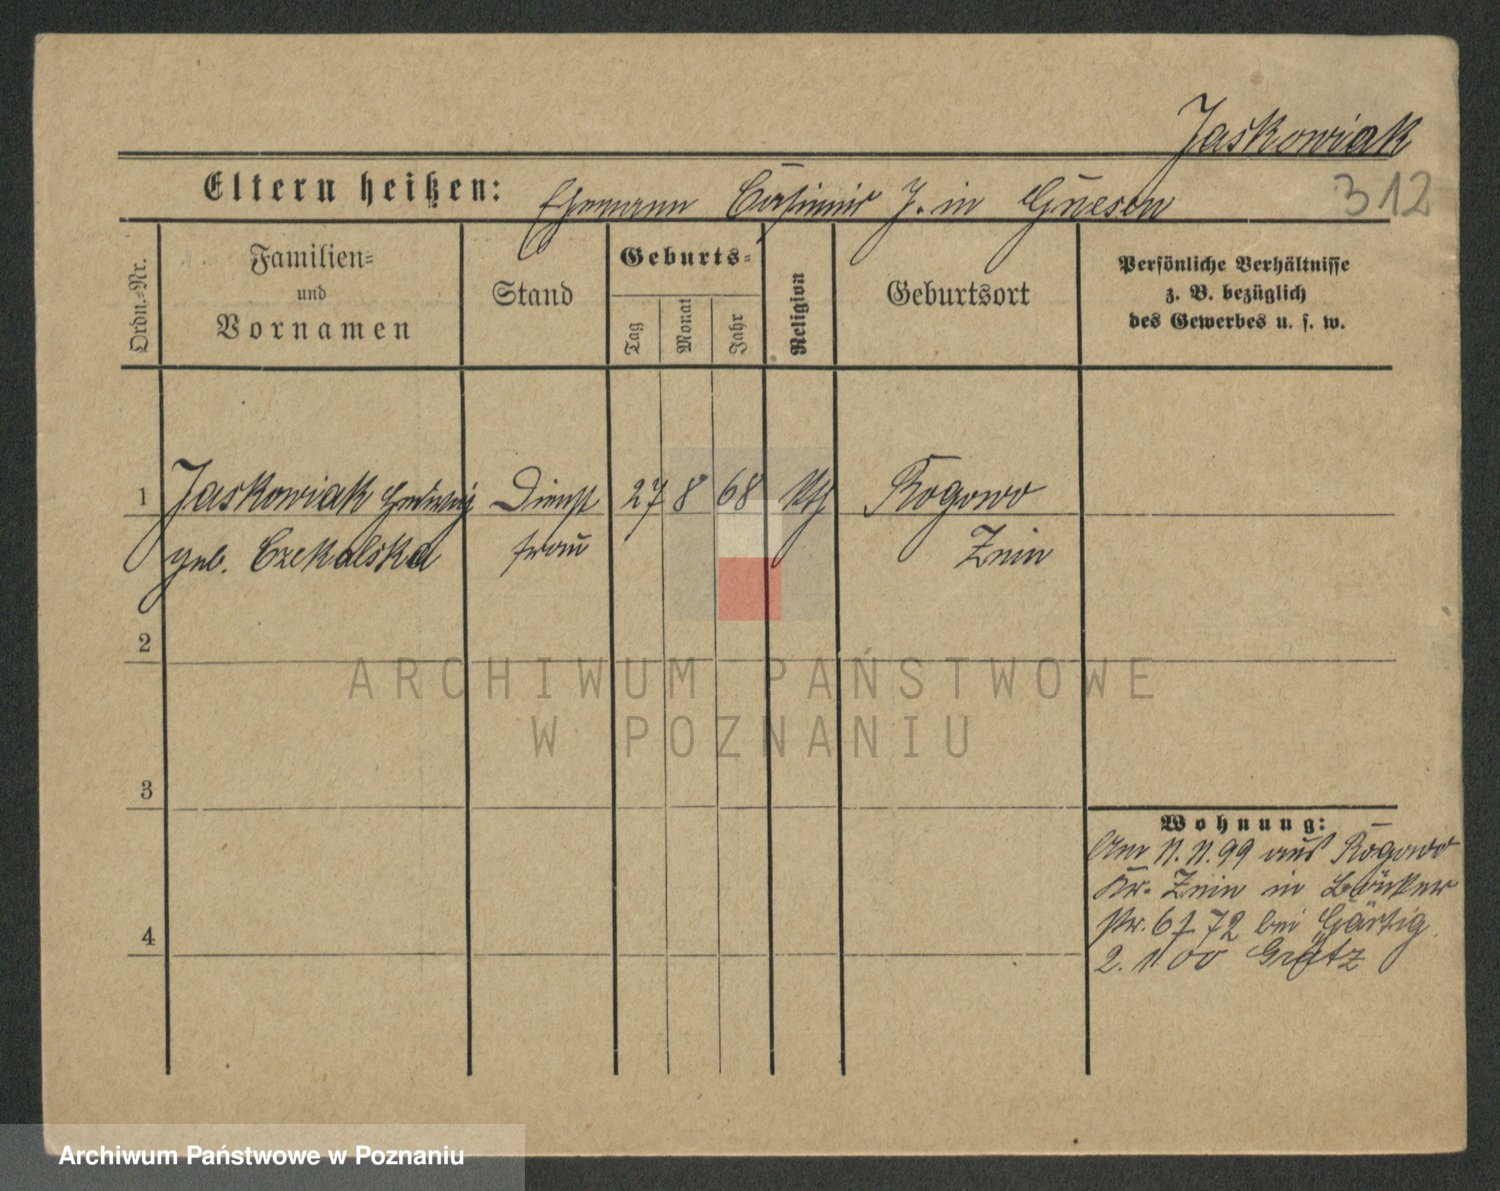 Jaskowiak
Eltern heißen: Ehemann Casimir J. in Gnesen
312
Ordn.-Nr.
Familien-
und
Vornamen
Stand
Geburts-
Tag
Monat
Jahr
Religion
Geburtsort
Persönliche Verhältnisse
z. B. bezüglich
des Gewerbes u. s. w.
1 Jaskowiak Hedwig Dienst 27 8 68 Rogowo
geb. Czekalska frau Znin
2
3
4
Wohnung:
Am 11.11.99 aus Rogowo
Kr. Znin in
bei Gärtig
2. 1 00 Grätz
ARCHIWUM PAŃSTWOWE
W POZNANIU
Archiwum Państwowe w Poznaniu